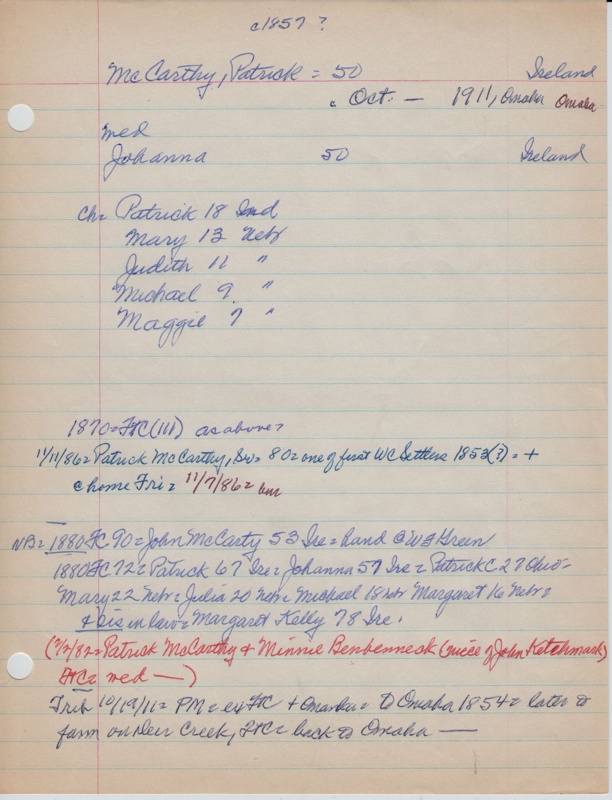 c1857 ?
McCarthy, Patrick = 50 Ireland
c Oct. — 1911, Omaha Omaha
med
Johanna 50 Ireland
ch= Patrick 18 Ind
Mary 13 Nebr
Judith 11 "
Michael 9 "
Maggie 7 "
1870=FtC(111) as above?
11/11/86= Patrick McCarthy, Sr= 80= one of first WC Settlers 1853(?) = +
@ home Fri= 11/7/86=
NB= 1880 FC 90= John McCarty 53 Ire= hand @ W Green
1880 FC 72= Patrick 67 Ire= Johanna 57 Ire= Patrick C 27 Ohio=
Mary 22 Nebr= Julia 20 Nebr= Michael 18 Nebr Margaret 16 Nebr=
& sis in law= Margaret Kelly 78 Ire.
(7/2/82= Patrick McCarthy & Minnie Benbennesk (niece of John Ketchmark)
FtC= med —)
Trib 10/19/11= PM= ex FtC + Omaha= to Omaha 1854= later to
farm on Deer Creek, FtC= back to Omaha —